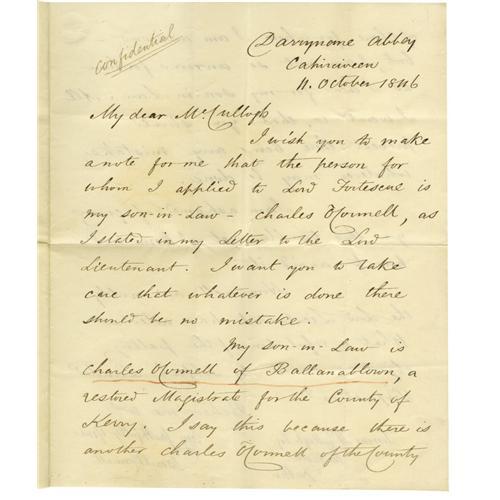 Confidential
Darrynane Abbey
Cahirciveen
11. October 1846
My dear Mc.Cullagh
I wish you to make
a note for me that the person for
whom I applied to Lord Fortescue is
my son-in-Law – Charles O'Connell, as
I stated in my Letter to the Lord
Lieutenant. I want you to take
care that whatever is done there
should be no mistake.
My son-in-Law is
Charles O'Connell of Ballanablown, a
restored Magistrate for the County of
Kerry. I say this because there is
another Charles O'Connell of the County